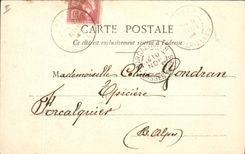 CARTE POSTALE
Ce côté est exclusivement réservé à l'adresse
Mademoiselle Gondran
Epicière
Forcalquier
(B. Alpes)